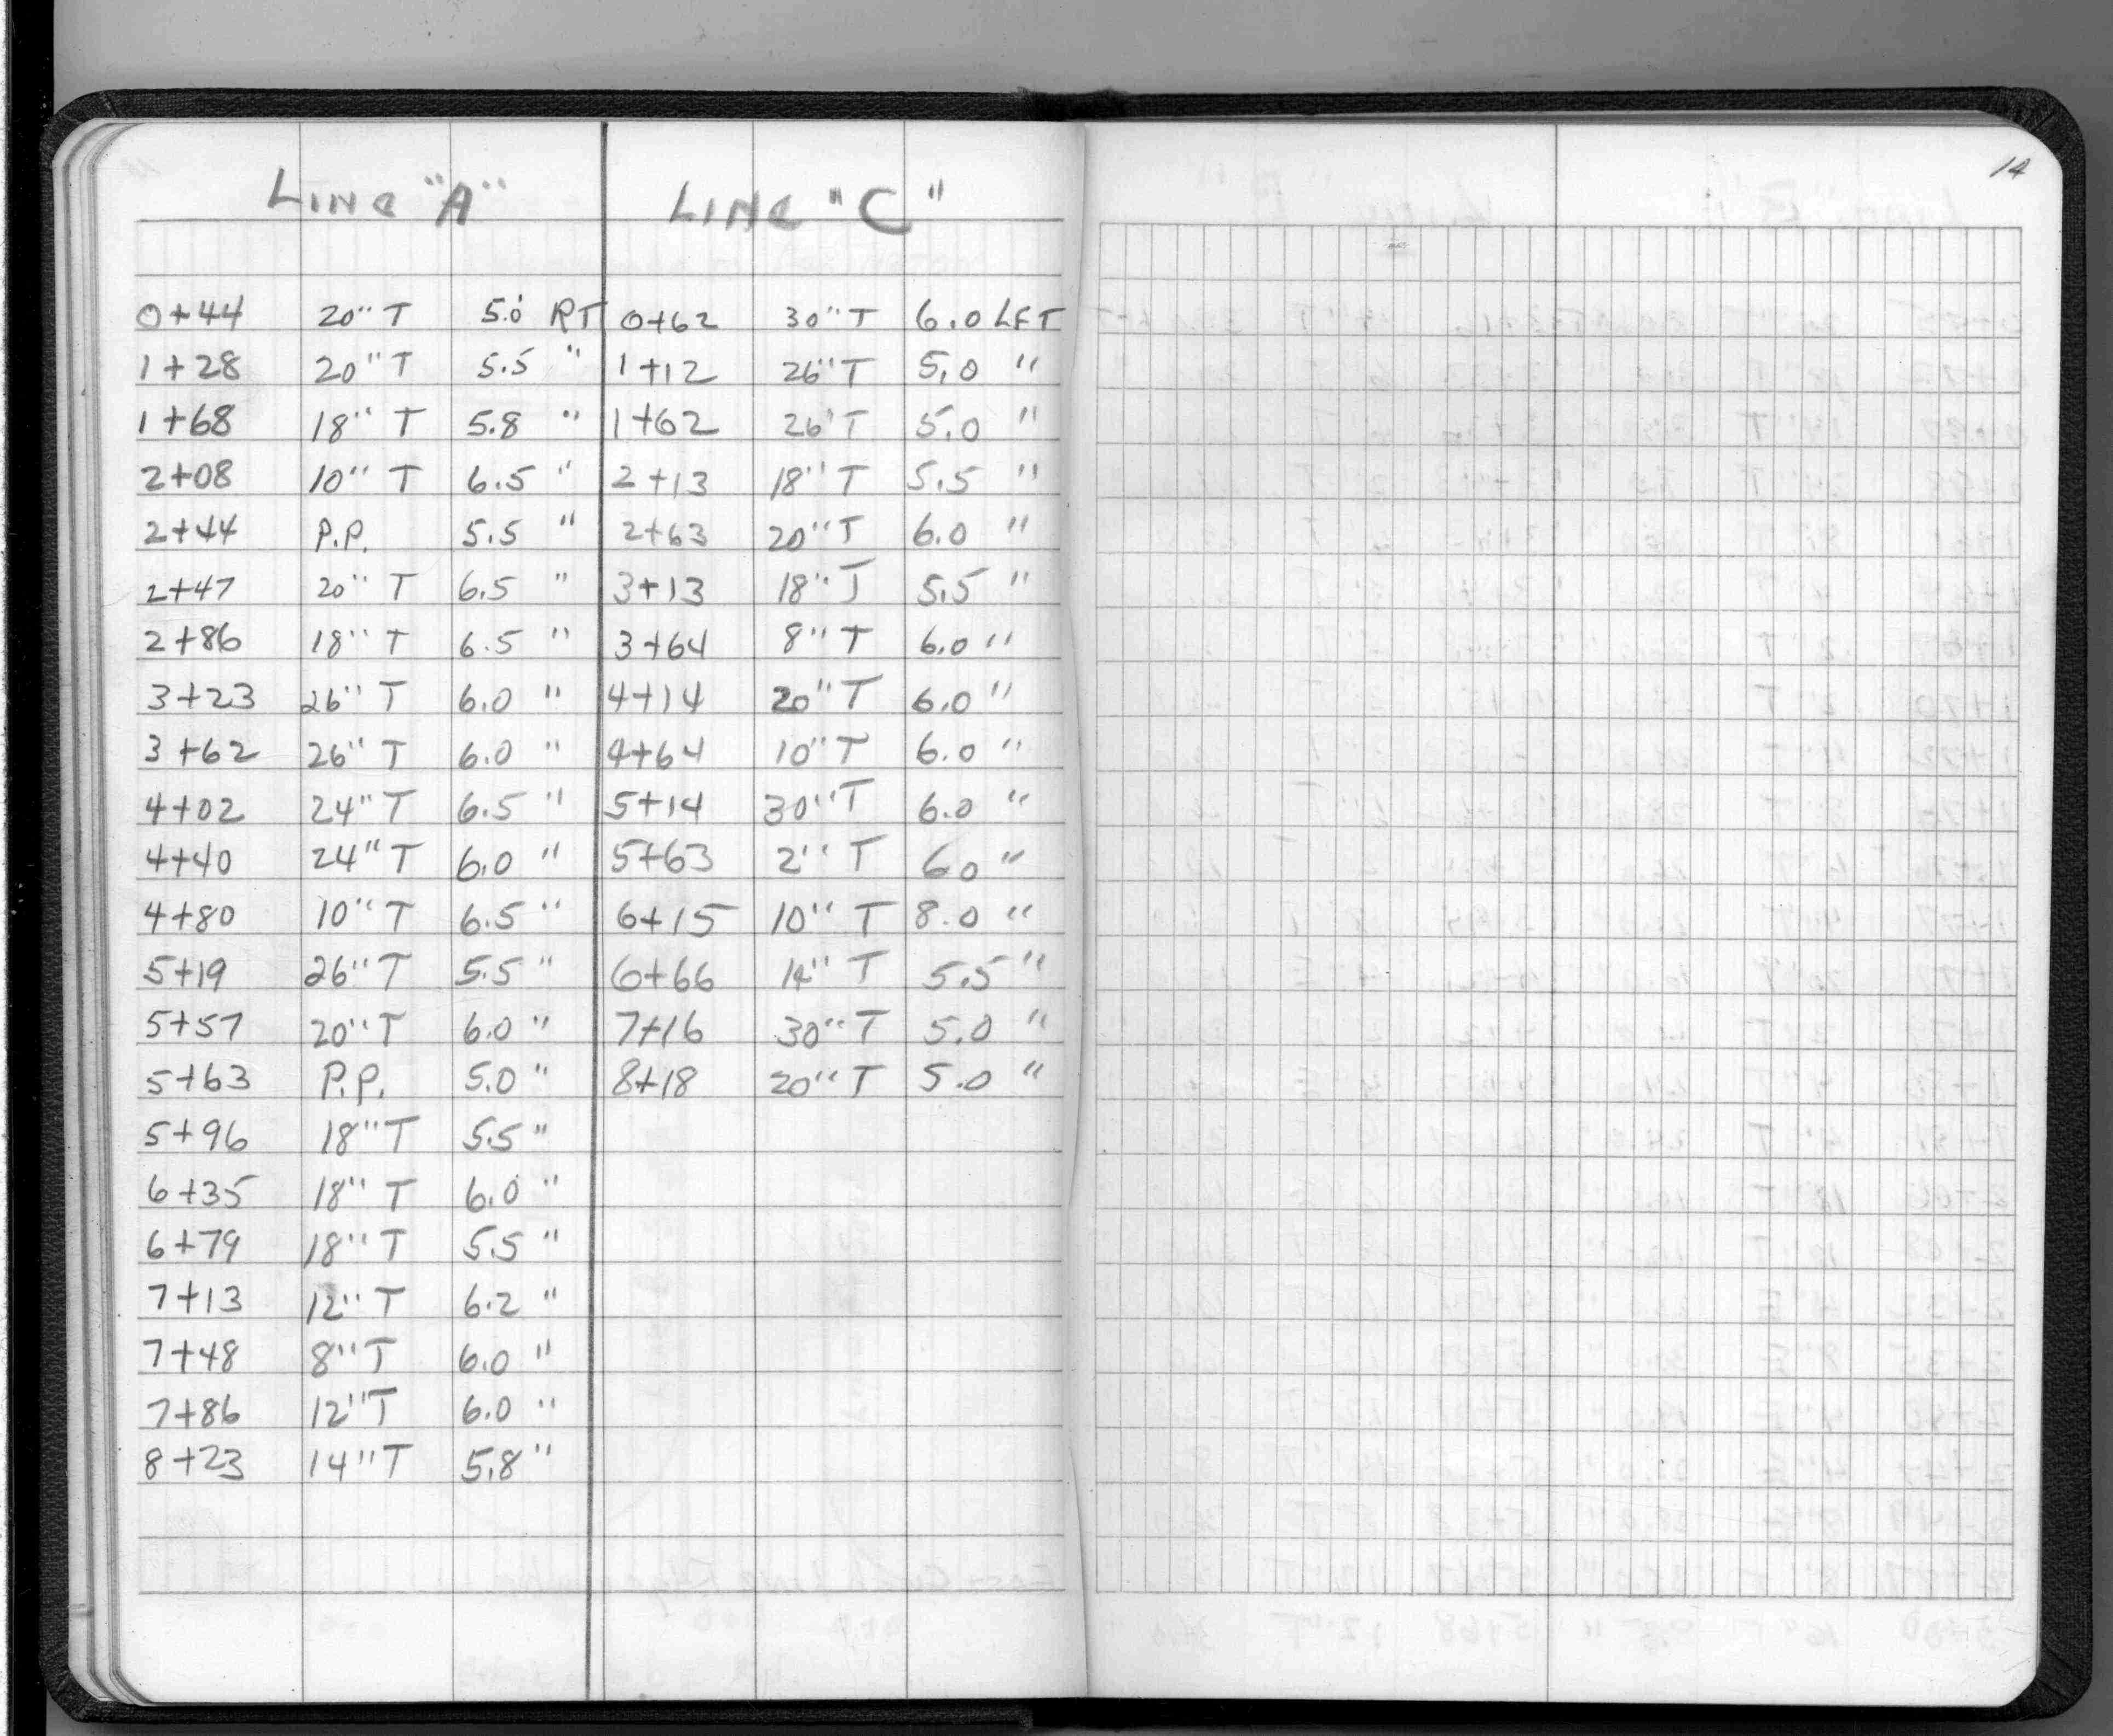 14
LINE "A" LINE "C"
0+44 20" T 5.0 RT 0+62 30" T 6.0 LFT
1+28 20" T 5.5 " 1+12 26" T 5.0 "
1+68 18" T 5.8 " 1+62 26" T 5.0 "
2+08 10" T 6.5 " 2+13 18" T 5.5 "
2+44 P.P. 5.5 " 2+63 20" T 6.0 "
2+47 20" T 6.5 " 3+13 18" T 5.5 "
2+86 18" T 6.5 " 3+64 8" T 6.0 "
3+23 26" T 6.0 " 4+14 20" T 6.0 "
3+62 26" T 6.0 " 4+64 10" T 6.0 "
4+02 24" T 6.5 " 5+14 30" T 6.0 "
4+40 24" T 6.0 " 5+63 2'' T 6.0 "
4+80 10" T 6.5 " 6+15 10" T 8.0 "
5+19 26" T 5.5 " 6+66 14" T 5.5 "
5+57 20" T 6.0 " 7+16 30" T 5.0 "
5+63 P.P. 5.0 " 8+18 20" T 5.0 "
5+96 18" T 5.5 "
6+35 18" T 6.0 "
6+79 18" T 5.5 "
7+13 12" T 6.2 "
7+48 8" T 6.0 "
7+86 12" T 6.0 "
8+23 14" T 5.8 "